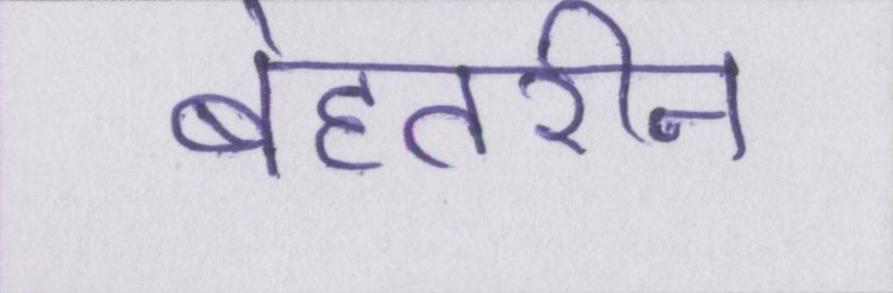 बेहतरीन